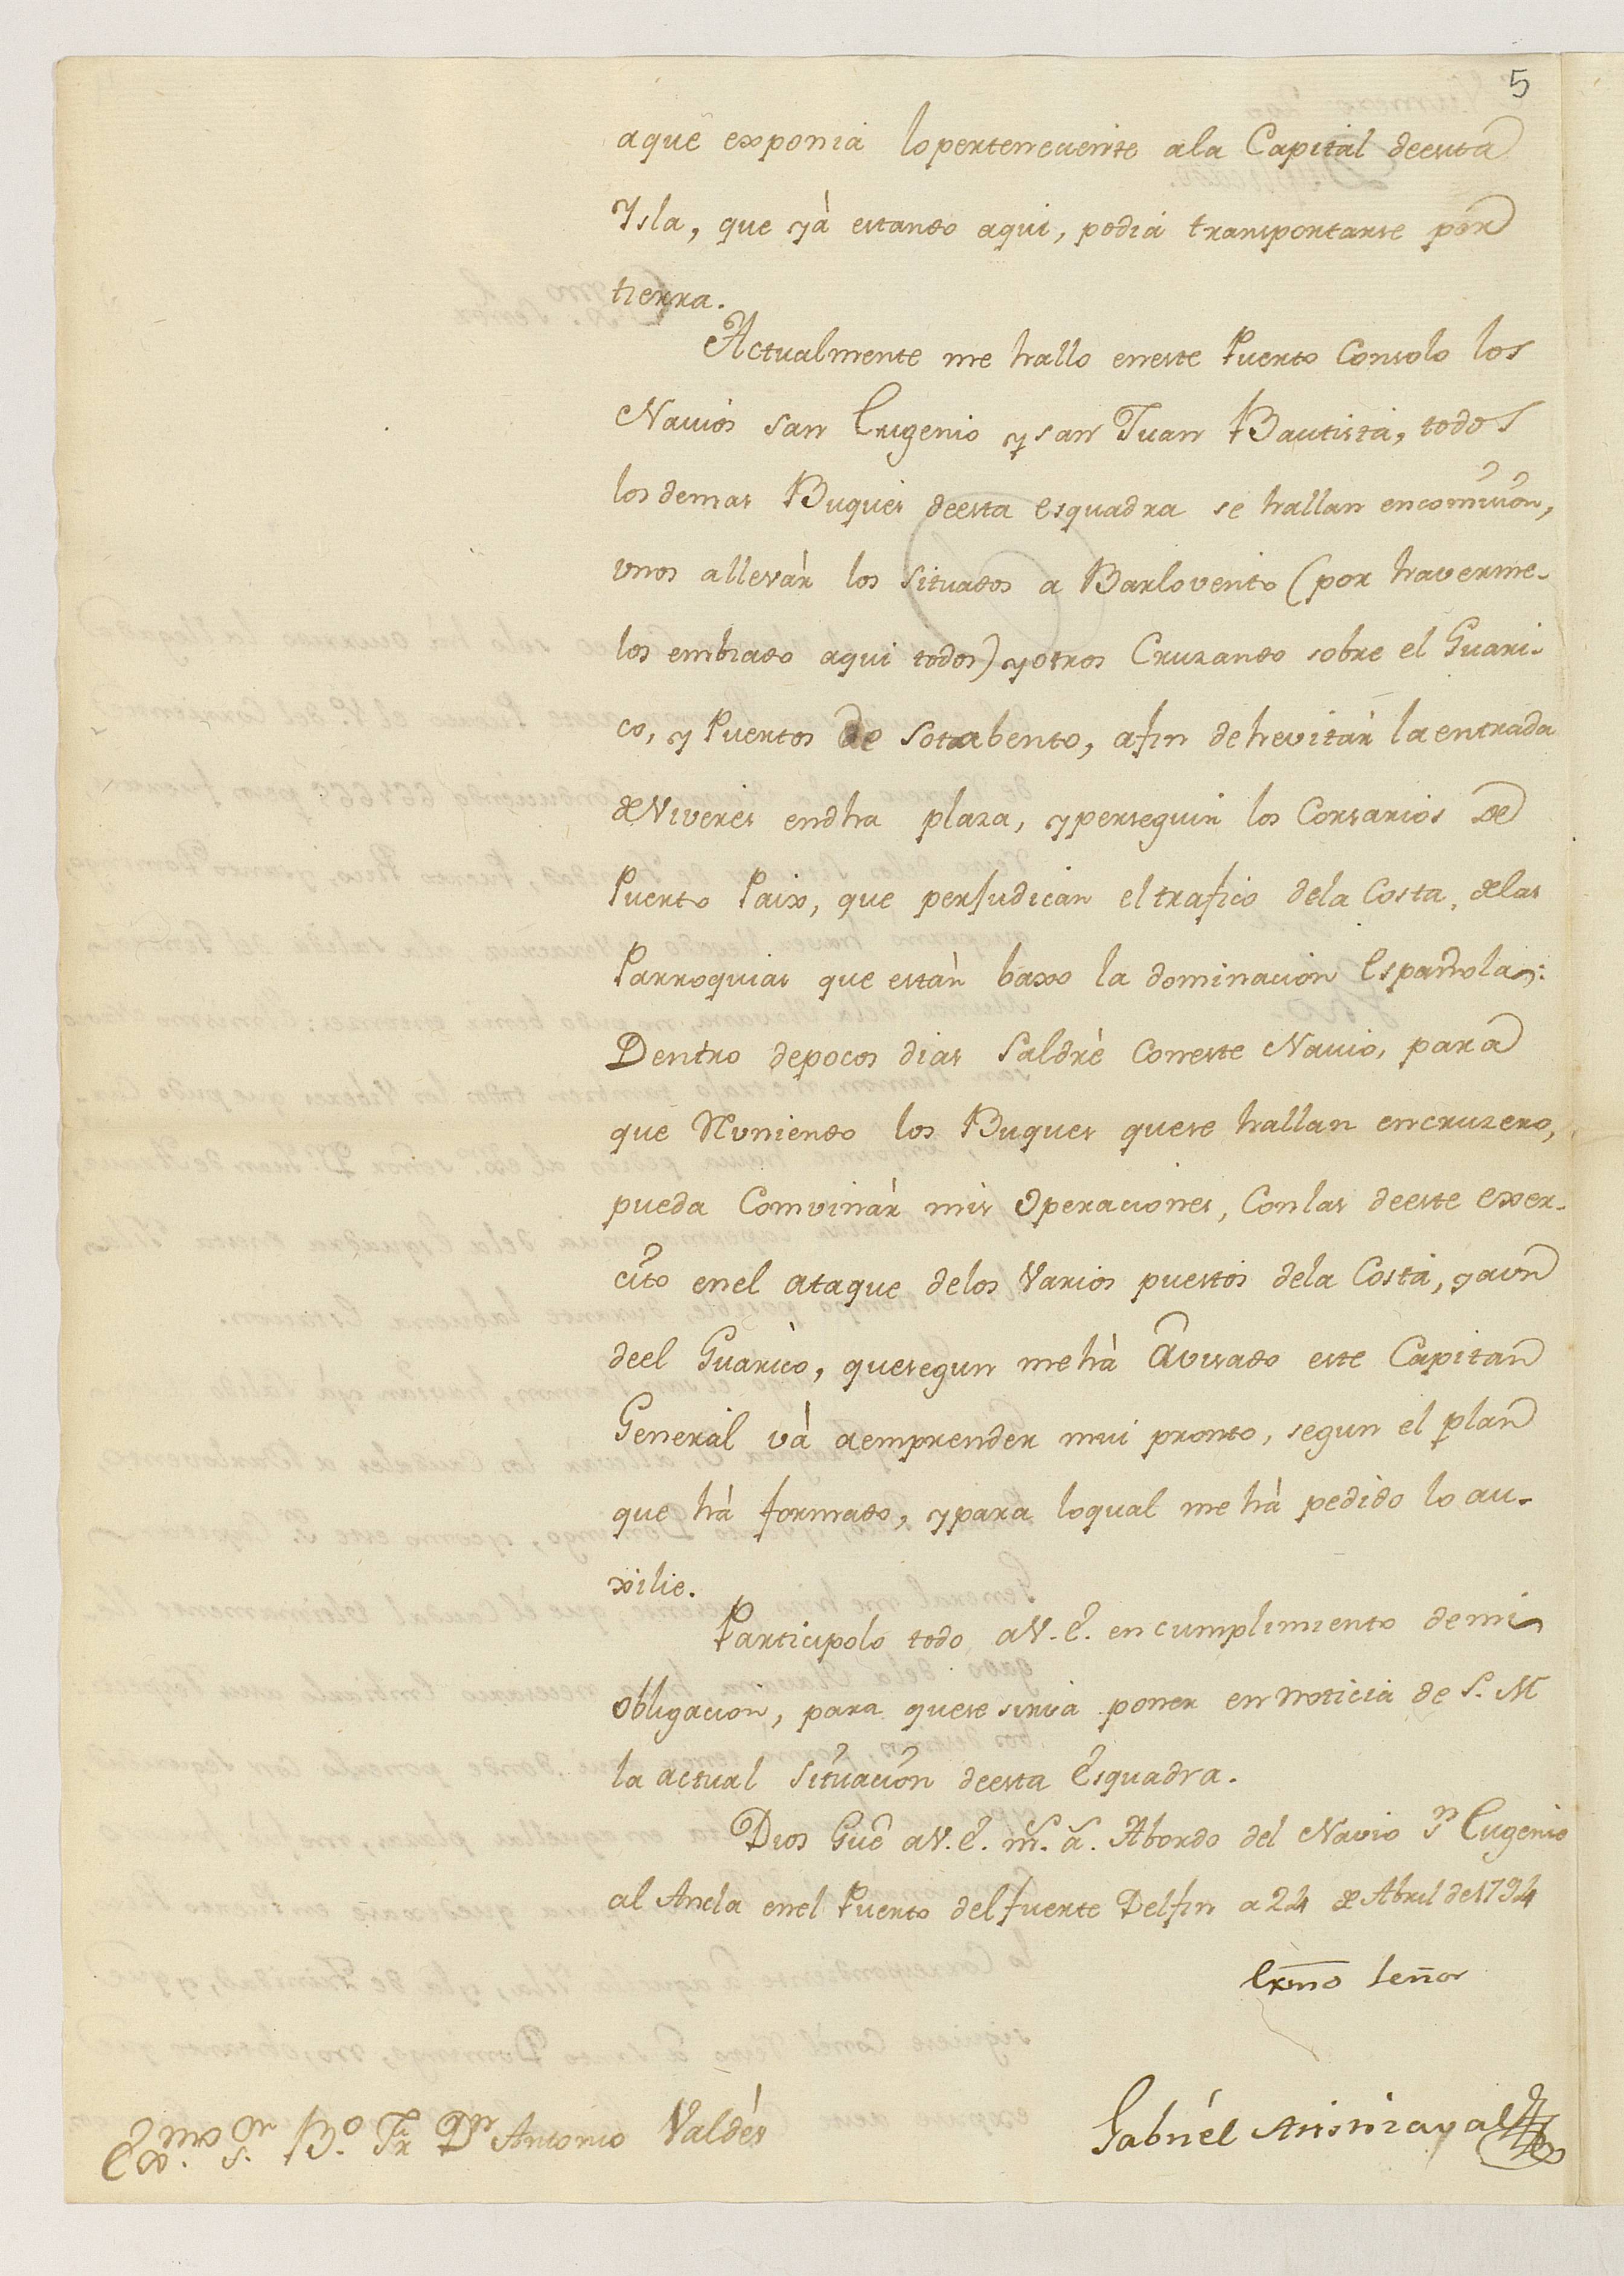 5
aque exponia lo perteneciente ala Capital deesta
Ysla, que yà estando aqui, podia transportarse por
tierra.
Actualmente me hallo eneste Puerto Consolo los
Navios san Eugenio y san Juan Bautista, todos
los demas Buques deesta esquadra se hallan encomision,
unos allevàr los situados a Barlovento (por haverme-
los embiado aqui todos) y otros Cruzando sobre el Guari-
co, y Puertos de Sotabento, afin dehevitàr la entrada
de Viveres endha plaza, y perseguir los Corsarios de
Puerto Paix, que perjudican el trafico dela Costa, delas
Parroquias que estàn baxo la dominacion Española:
Dentro depocos dias Saldrè coneste Navio, para
que Runiendo los Buques quese hallan encruzero,
pueda Comvinàr mis Operaciones, Conlas deeste exer-
cito enel ataque delos Varios puestos dela Costa, y aun
deel Guarico, quesegun mehà avisado este Capitan
General và aemprender mui pronto, segun el plan
que hà formado, y para loqual me hà pedido lo au-
xilie.
Participolo todo aV.E. en cumplimiento demi
obligacion, para quese sirva poner en noticia de S. M
la actual Situacion deesta Esquadra.
Dios Gue aV.E. ms. as. Abordo del Navio Sn Eugenio
al Ancla enel Puerto del fuerte Delfin a 24 de Abril de 1794
Exmo Señor
Gabriel Aristizaval
Exmo Sr. B.o Fr Dn Antonio Valdès